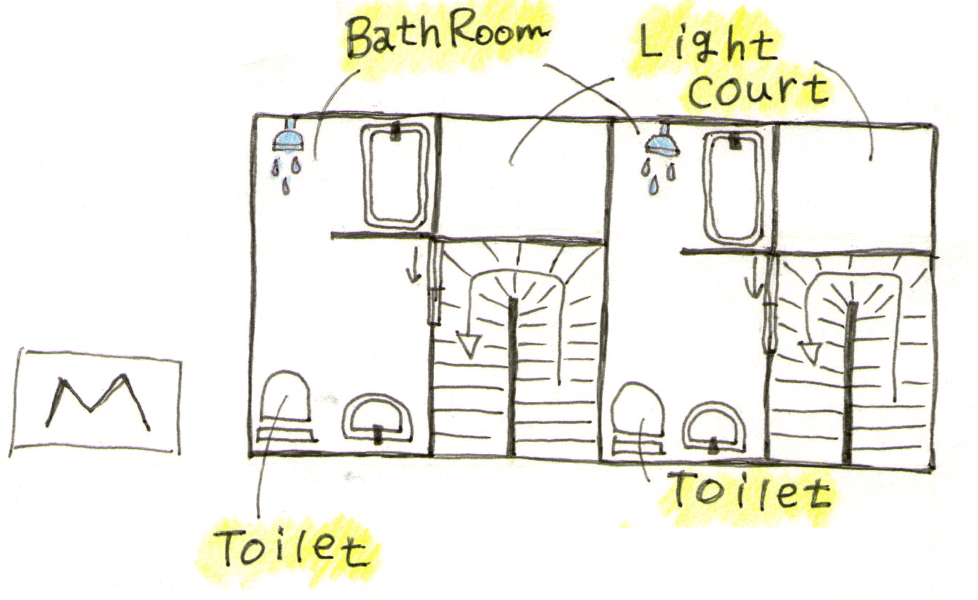 BathRoom
Light
court
M
Toilet
Toilet